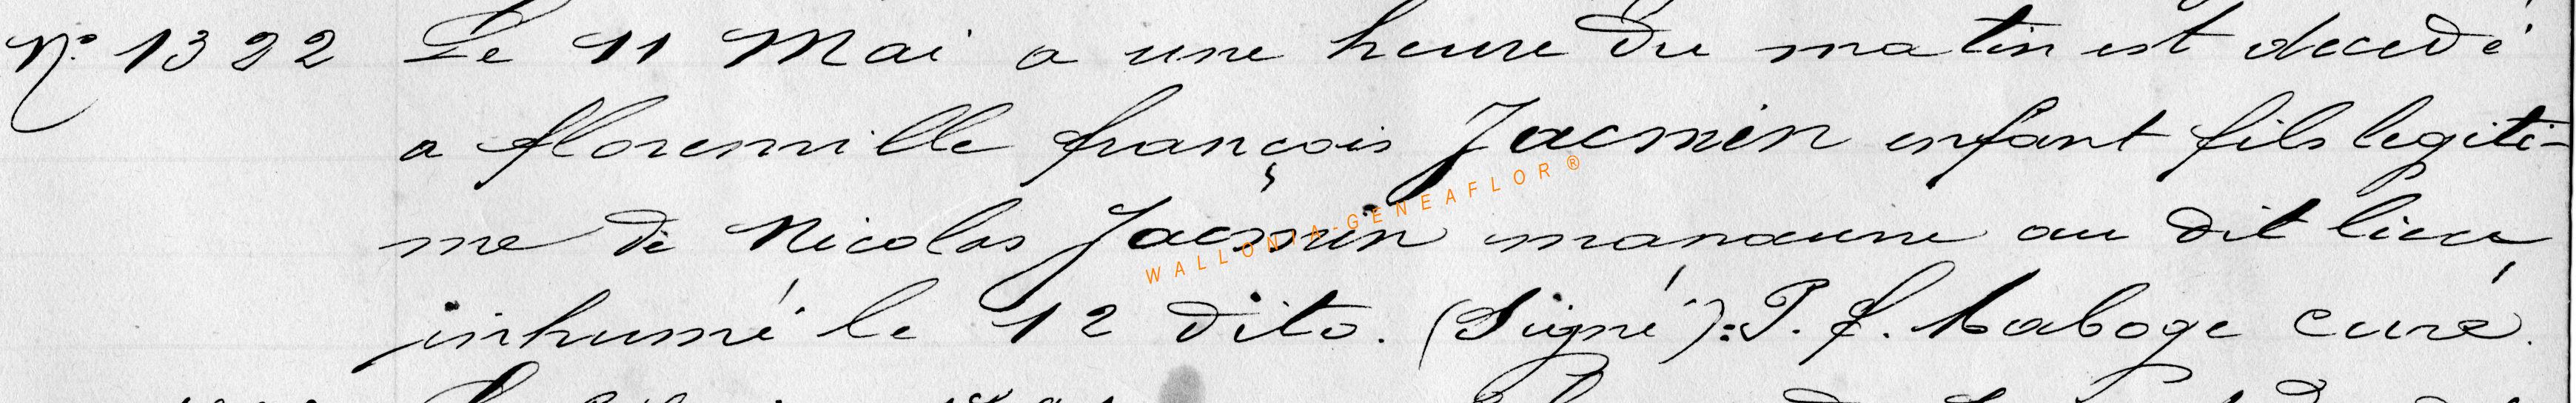 N° 1322 Le 11 Mai a une heure du matin est decedé
a florenville françois Jacmin enfant fils legiti-
me de Nicolas Jacmin manauvre au dit lieu
WALLONIA-GENEAFLOR®
inhumé le 12 dito. (Signé): P. f. Laboge curé.